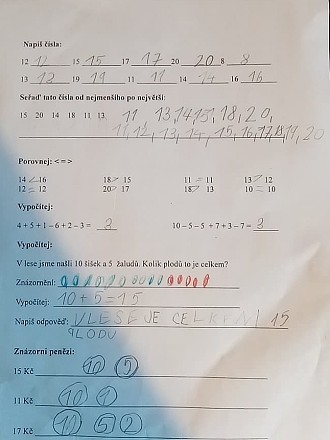 Napiš čísla:
12 12 15 15 17 17 20 20 8 8
13 13 19 19 11 11 14 14 16 16
Seřaď tato čísla od nejmenšího po největší:
15 20 14 18 11 13 11 13,14,15,18,20,
11,12,13,14,15,16,17,18,19,20
Porovnej: < = >
14 < 16 18 > 15 11 = 11 13 > 12
12 = 12 20 > 17 18 > 13 10 = 10
Vypočítej:
4 + 5 + 1 – 6 + 2 – 3 = 3 10 – 5 – 5 + 7 + 3 – 7 = 3
Vypočítej:
V lese jsme našli 10 šišek a 5 žaludů. Kolik plodů to je celkem?
Znázornění:
Vypočítej: 10 + 5 = 15
Napiš odpověď: V LESE JE CELKEM 15
PLODU
Znázorni penězi:
15 Kč 10 5
11 Kč 10 1
17 Kč 10 5 2